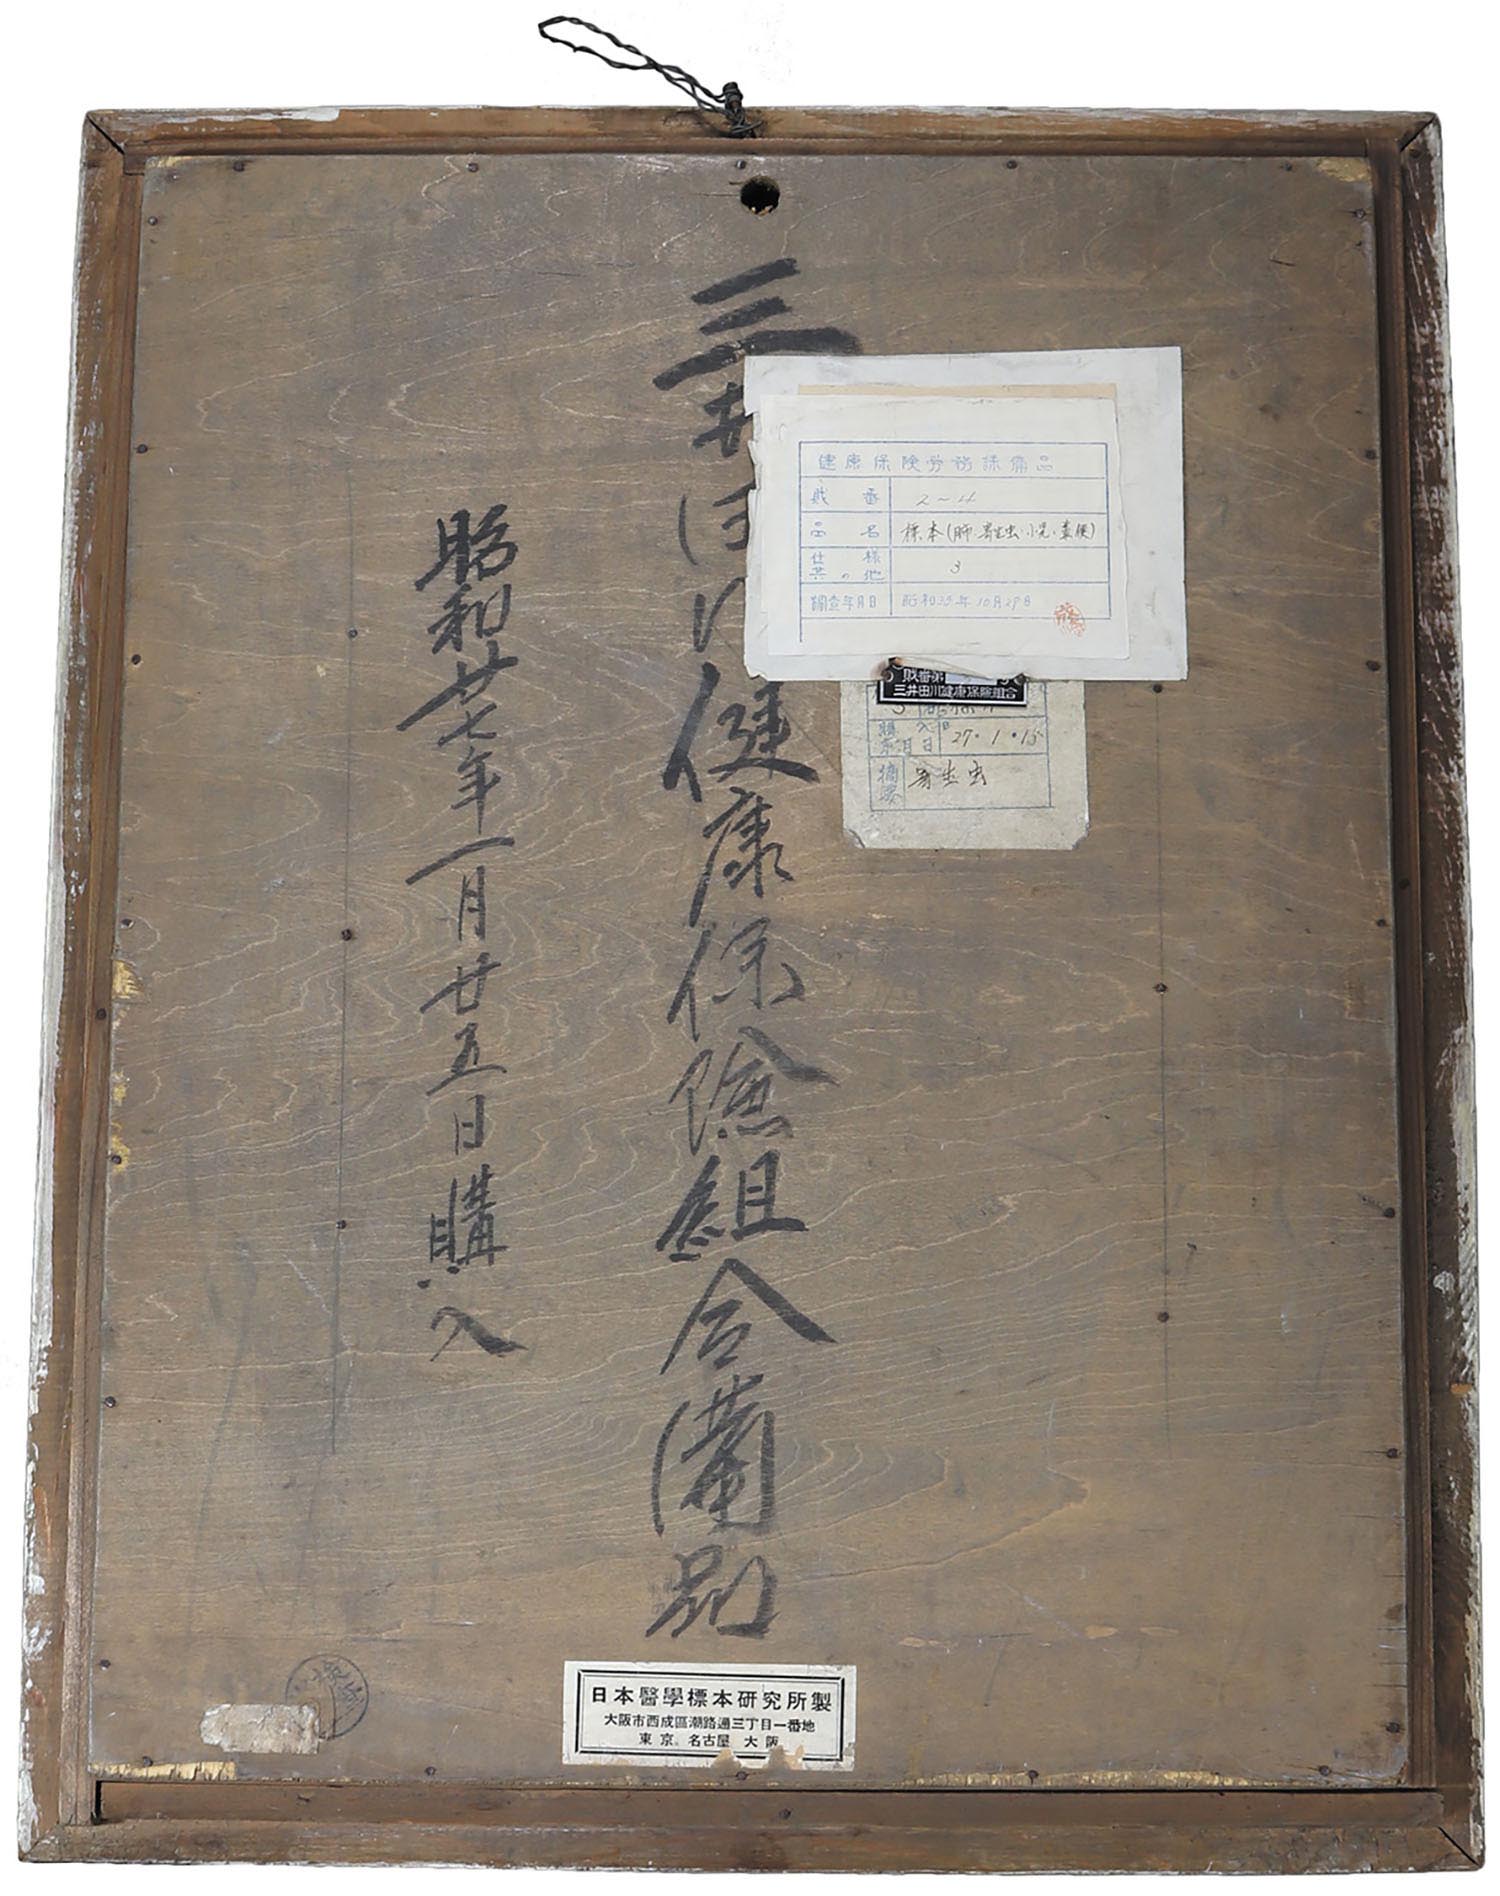 三井田川健康保險組合備品
昭和廿七年一月廿五日購入
健康保険労務課備品
財番 2~4
品名 標本(肺・寄生虫・小児・蓋便)
仕様其の他 3
調査年月日 昭和35年10月29日
財番第
三井田川健康保険組合
購入年月日 27・1・15
摘要 寄生虫
日本醫學標本研究所製
大阪市西成區潮路通三丁目一番地
東京 名古屋 大阪